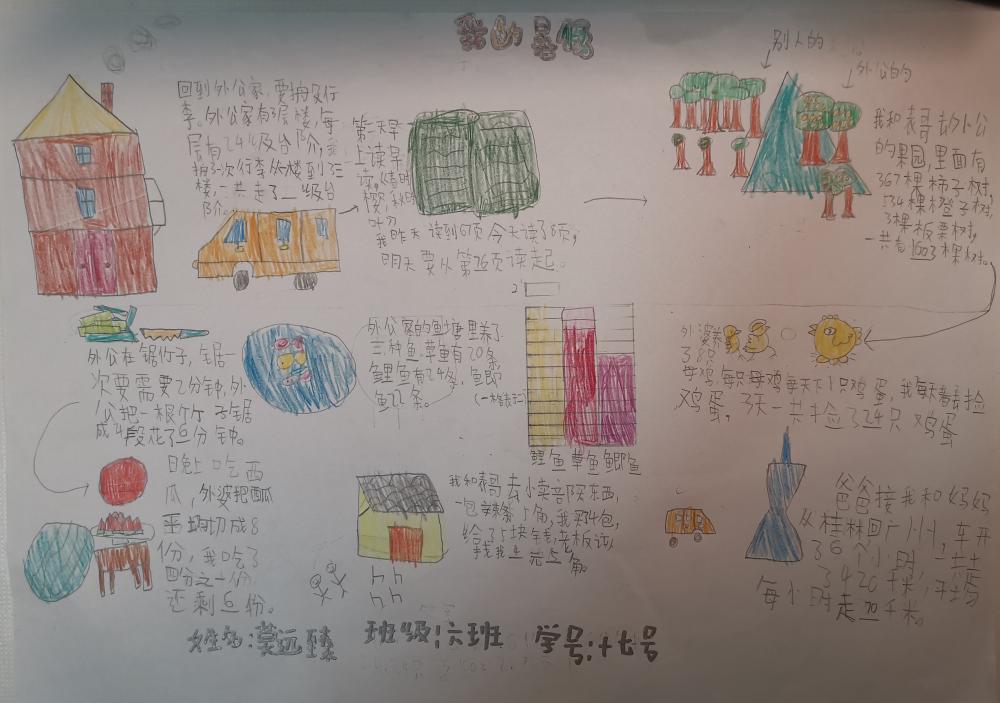 我的暑假
别人的
外公的
回到外公家,要拇没行
李,外公家有3层楼,每
层有24级台阶,
拇3次行李从楼到三
楼,一共走了二级台
阶。
第二天早
上读早
读。
我昨天读到67页今天读了8页,
明天要从第76页读起。
我和表哥去外公
的果园,里面有
367棵柿子树,
534棵橙子树,
3棵板栗树,
一共有1003棵树。
外公在锯竹子,锯一
次要需要2分钟,外
公把一根竹竹子锯
成4段花了6分钟。
外公家的鱼塘里养了
三种鱼草鱼有20条,
鲤鱼有24条,鲫
鱼12条。
(一格表示二)
2
鲤鱼草鱼鲫鱼
外婆养
了8只
母鸡,每只母鸡每天下1只鸡蛋,我每天都去捡
鸡蛋。3天一共捡了24只鸡蛋
日晚上吃西
瓜,外婆把西瓜
平均切成8
份,我吃了
四分之一份
还剩6份。
我和表哥去小卖部买东西,
一包辣条5角,我买4包,
给了5块钱,老板
找我三元五角。
爸爸接我和妈妈
从桂林回广州,车开
了6个小时,
了420千米,
每小时走70千米。
姓名:莫远臻 班级:六班 学号:十七号